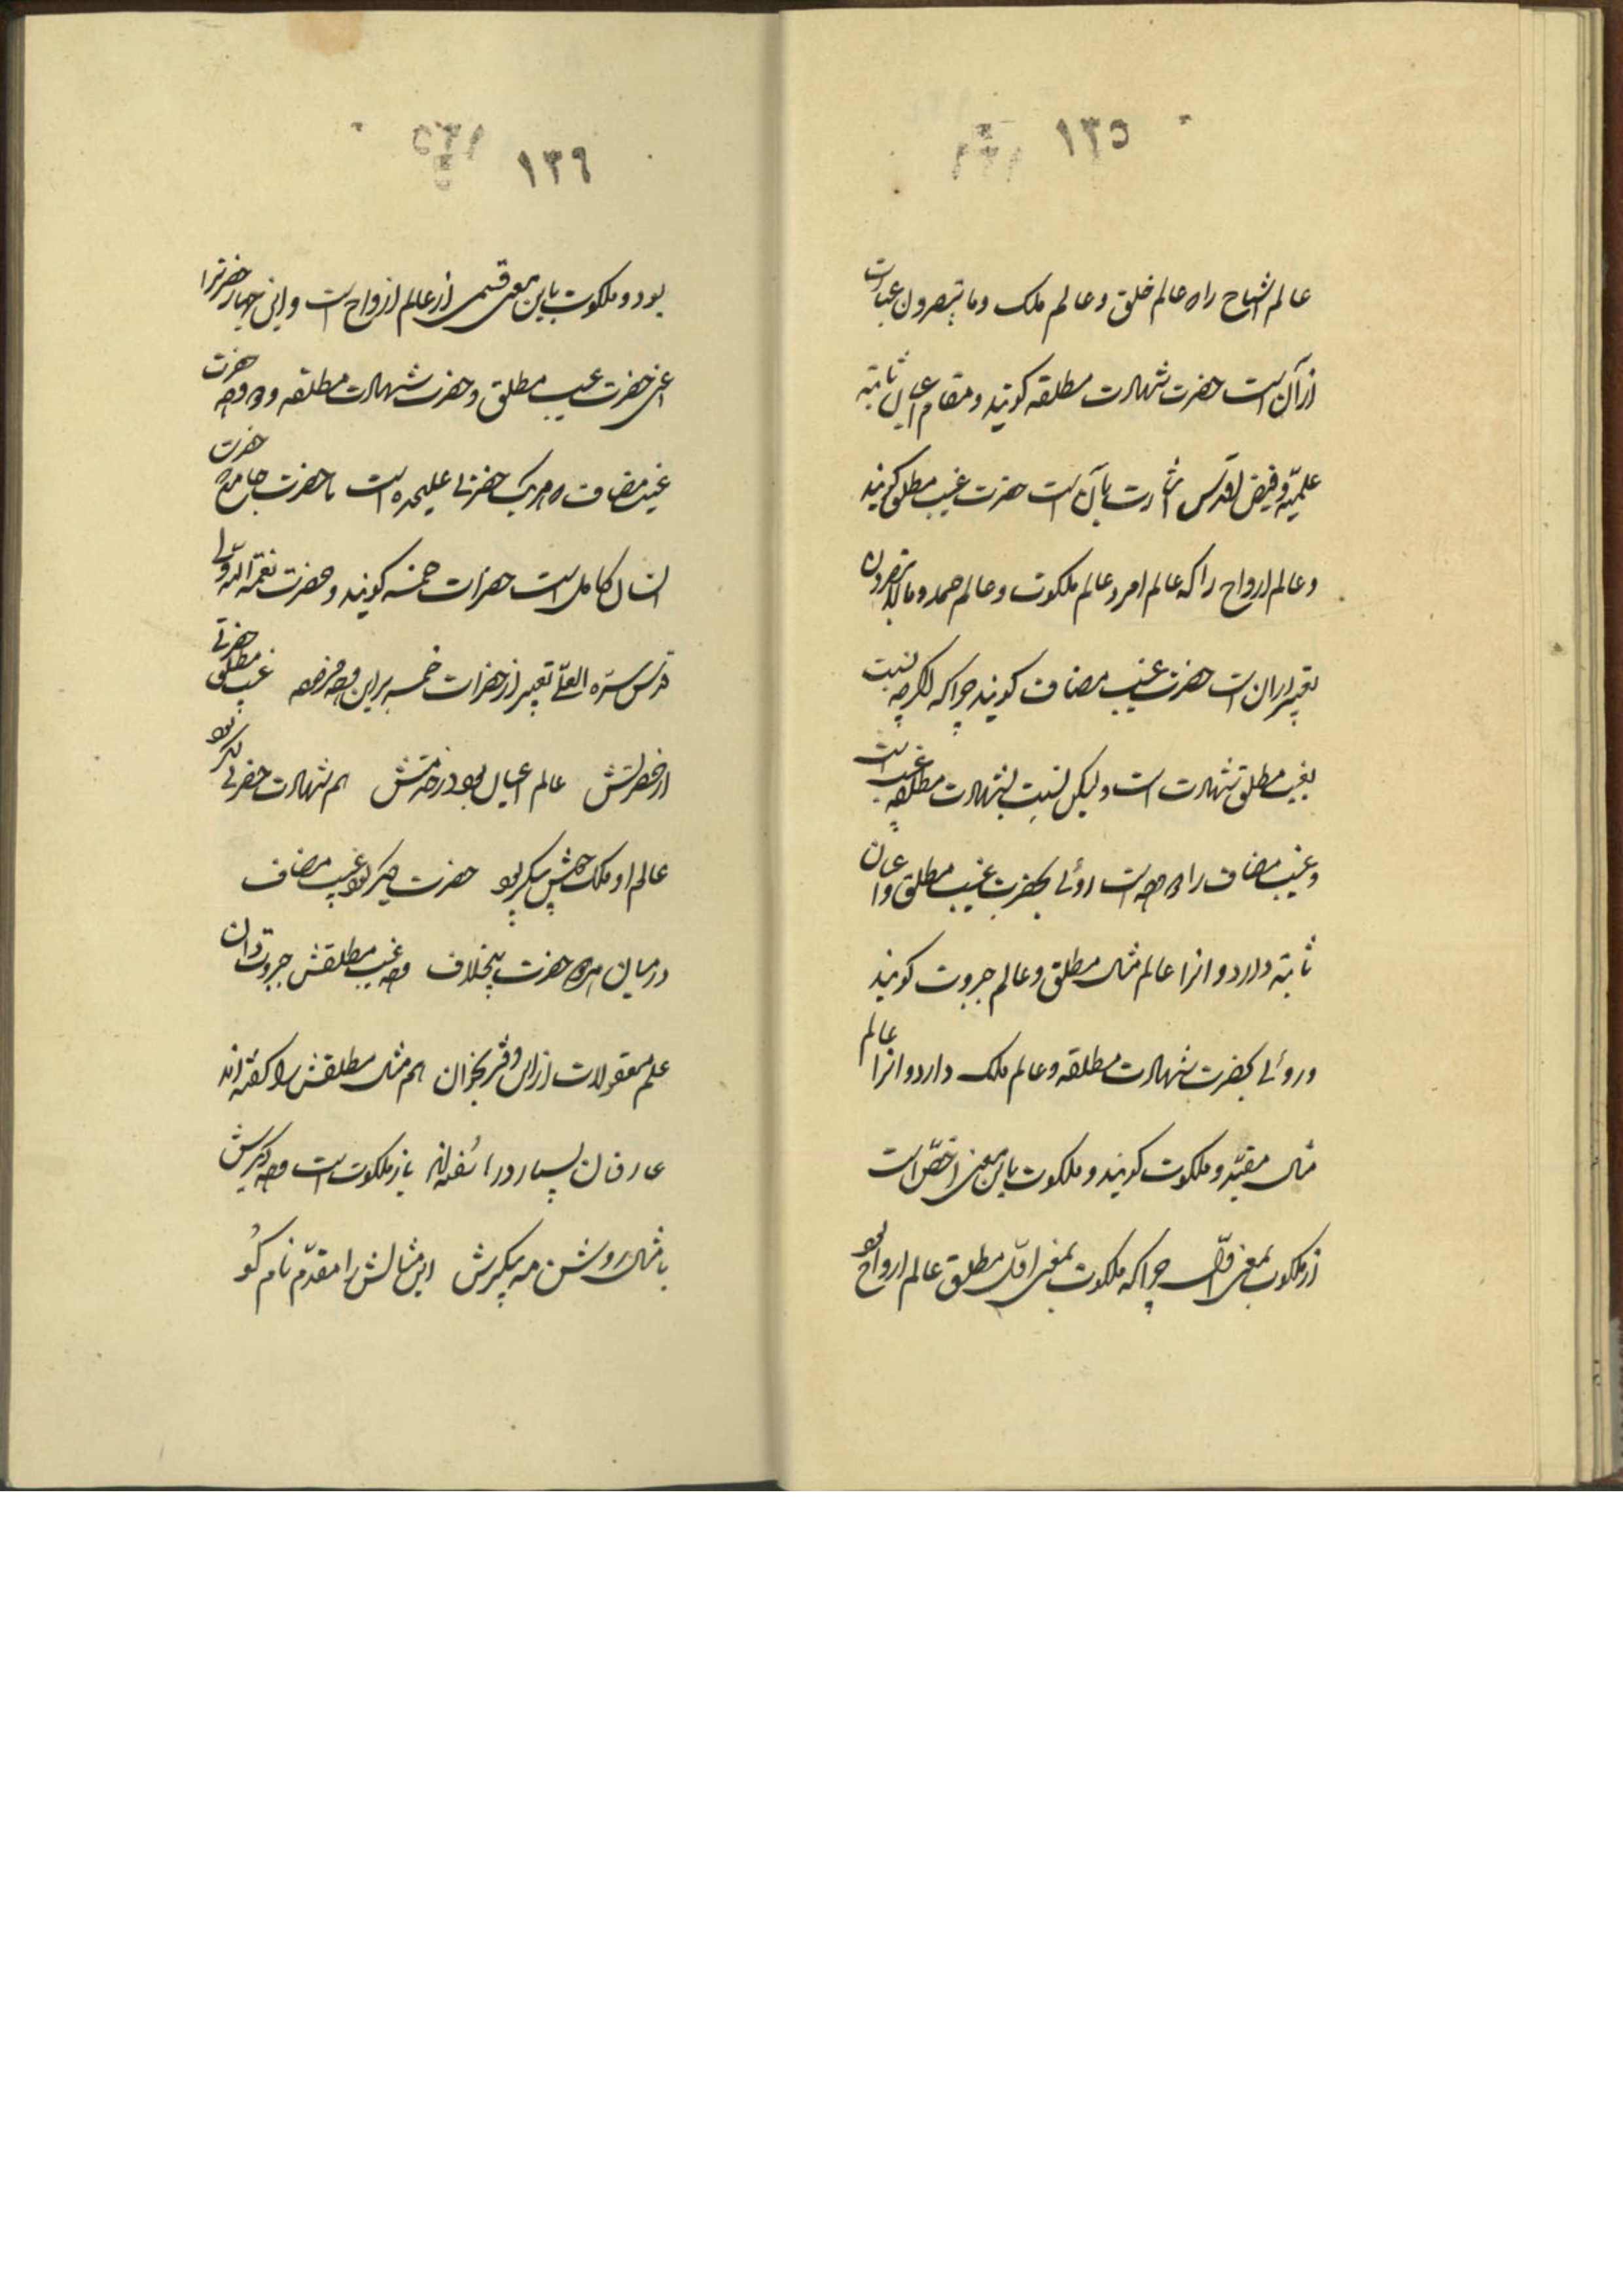 ١٣٥
عالم اشباح را که عالم خلق و عالم ملک و ما تبصرون عبارت
از آن است حضرت شهادت مطلقه کویند و مقام اعیان ثابته
علمیّه و فیض اقدس اشارت بآن است حضرت غیب مطلق کویند
و عالم ارواح را که عالم امر و عالم ملکوت و عالم حمد و ما لا تبصرون
تعبیر از ان است حضرت غیب مضاف کویند چرا که اکرچه نسبت
بغیب مطلق شهادت است ولیکن نسبت بشهادت مطلقه غیب است
و غیب مضاف را دو وجه است روئی بحضرت غیب مطلق و اعیان
ثابته دارد و انرا عالم مثال مطلق و عالم جبروت کویند
و روئی بحضرت شهادت مطلقه و عالم ملک دارد و انرا عالم
مثال مقیّد و ملکوت کویند و ملکوت باین معنی اخصّ است
از ملکوت بمعنی اوّل چرا که ملکوت بمعنی اوّل مطلق عالم ارواح بود
١٣٦
بود و ملکوت باین معنی قسمی از عالم ارواح است و این چهار حضرترا
اعنی حضرت غیب مطلق و حضرت شهادت مطلقه و دو وجه حضرت
غیب مضاف که هریک حضرتی علیحده است با حضرت جامعه حضرت
انسان کامل است حضرات خمسه کویند و حضرت نعمة الله ولی
قدّس سرّه العلی تعبیر از حضرات خمسه براین وجه فرموده غیب مطلق حضرتی
از حضرتش عالم اعیان بود در خدمتش هم شهادت حضرتی دیکر بود
عالم او ملک خوش پیکر بود حضرت دیکر بود غیب مضاف
در میان هر دو حضرت بیخلاف وجه غیب مطلقش جبروت دان
علم معقولات از این دفتر بخوان هم مثال مطلقش را کفته‌اند
عارفان بسیار در را سفته‌اند باز ملکوت است وجه دیکرش
با مثال روشن مه پیکرش این مثالش را مقدّم نام کو